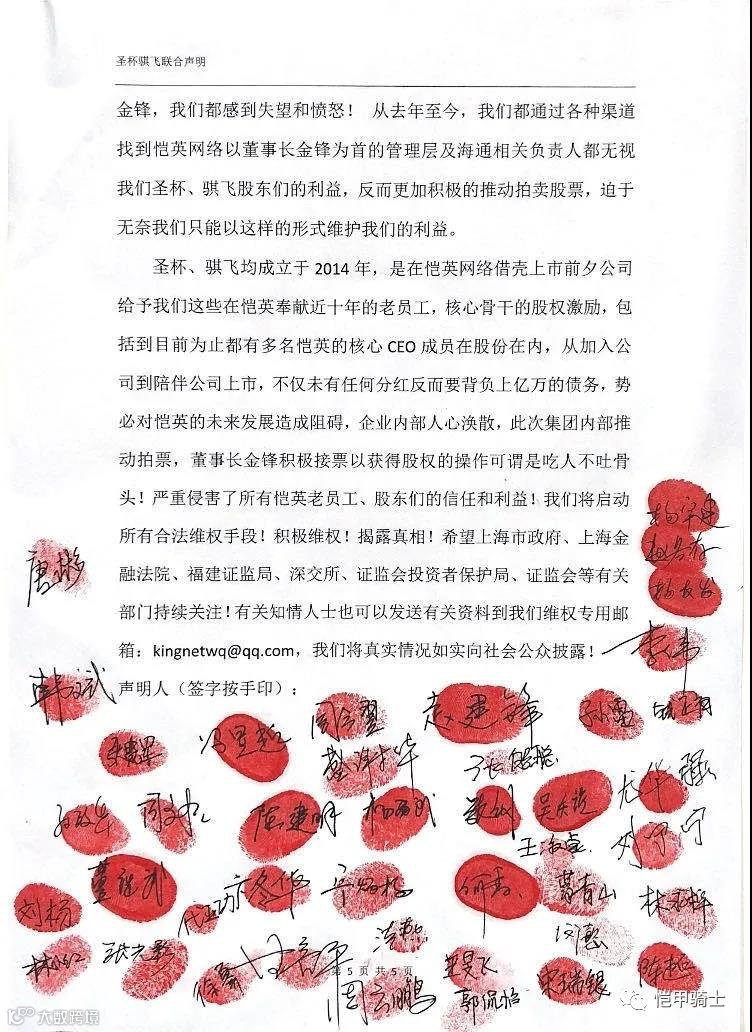 圣杯骐飞联合声明
金锋，我们都感到失望和愤怒！ 从去年至今，我们都通过各种渠道
找到恺英网络以董事长金锋为首的管理层及海通相关负责人都无视
我们圣杯、骐飞股东们的利益，反而更加积极的推动拍卖股票，迫于
无奈我们只能以这样的形式维护我们的利益。
圣杯、骐飞均成立于 2014 年，是在恺英网络借壳上市前夕公司
给予我们这些在恺英奉献近十年的老员工，核心骨干的股权激励，包
括到目前为止都有多名恺英的核心 CEO 成员在股份在内，从加入公
司到陪伴公司上市，不仅未有任何分红反而要背负上亿万的债务，势
必对恺英的未来发展造成阻碍，企业内部人心涣散，此次集团内部推
动拍票，董事长金锋积极接票以获得股权的操作可谓是吃人不吐骨
头！严重侵害了所有恺英老员工、股东们的信任和利益！我们将启动
所有合法维权手段！积极维权！揭露真相！希望上海市政府、上海金
融法院、福建证监局、深交所、证监会投资者保护局、证监会等有关
部门持续关注！有关知情人士也可以发送有关资料到我们维权专用邮
箱：kingnetwq@qq.com，我们将真实情况如实向社会公众披露！
声明人（签字按手印）：
唐彬
韩文斌
李伟
孙勇
陈建明
吴庆龙
王海良
刘宁宁
刘杨
董龙武
葛青山
何勇
徐勇
周云鹏
郭侃怡
宋瑞银
第 5 页 共 5 页
大数跨境
恺甲骑士